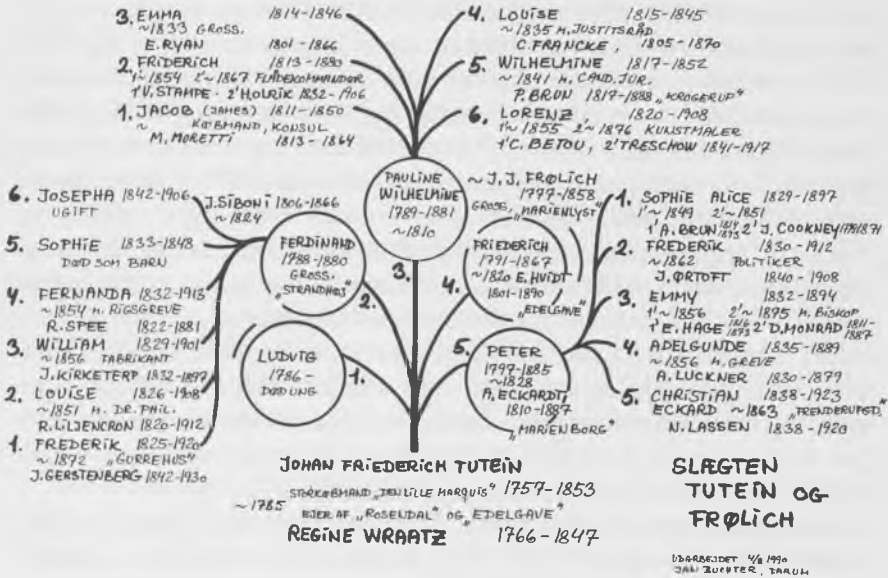 3. EMMA 1814-1846
~1833 GROSS.
E. RYAN 1801-1866
2. FRIDERICH 1813-1880
1'~1854 2'~1867 FLÅDEKOMMANDØR
1'V. STAMPE · 2'HOLRIK 1832-1906
1. JACOB (JAMES) 1811-1850
~ KØBMAND, KONSUL
M. MORETTI 1813-1864
4. LOUISE 1815-1845
~1835 M. JUSTITSRÅD
C. FRANCKE, 1805-1870
5. WILHELMINE 1817-1852
~1841 M. CAND. JUR.
P. BRUN 1817-1888 „KROGERUP"
6. LORENZ, 1820-1908
1'~1855 2'~1876 KUNSTMALER
1'C. BETOU, 2'TRESCHOW 1841-1917
PAULINE
WILHELMINE
1789-1881
~1810
3.
~J. J. FRØLICH
1797-1858
GROSS., „MARIENLYST"
6. JOSEPHA 1842-1906
UGIFT
5. SOPHIE 1833-1848
DØD SOM BARN
4. FERNANDA 1832-1913
~1854 M. RIGSGREVE
R. SPEE 1822-1881
3. WILLIAM 1829-1901
~1856 FABRIKANT
J. KIRKETERP 1832-1897
2. LOUISE 1826-1908
~1851 M. DR. PHIL.
R. LILIENCRON 1820-1912
1. FREDERIK 1825-1920
~1872 „GURREHUS"
J. GERSTENBERG 1842-1930
J. SIBONI 1806-1866
~1824
FERDINAND
1788-1880
GROSS.
„STRANDHØJ"
2.
LUDVIG
1786-
DØD UNG
1.
FRIEDERICH
1791-1867
~1820 E. HVIDT
1801-1890
„EDELGAVE"
4.
PETER
1797-1885
~1828
A. ECKARDT,
1810-1887
„MARIENBORG"
5.
1. SOPHIE ALICE 1829-1897
1'~1849 2'~1851
1'A. BRUN 2'J. COOKNEY
2. FREDERIK 1830-1912
~1862 POLITIKER
J. ØRTOFT 1840-1908
3. EMMY 1832-1894
1'~1856 2'~1875 M. BISKOP
1'E. HAGE 2'D. MONRAD 1811-1887
4. ADELGUNDE 1835-1889
~1856 M. GREVE
A. LUCKNER 1830-1879
5. CHRISTIAN 1838-1923
ECKARD ~1863 „FRENDERUPGD."
N. LASSEN 1838-1920
JOHAN FRIEDERICH TUTEIN
STORKØBMAND „DEN LILLE MARQUIS" 1757-1853
~1785
EJER AF „ROSENDAL" OG „EDELGAVE"
REGINE WRAATZ 1766-1847
SLÆGTEN
TUTEIN OG
FRØLICH
UDARBEJDET 4/8 1990
JAN BUCHTER, DARUM